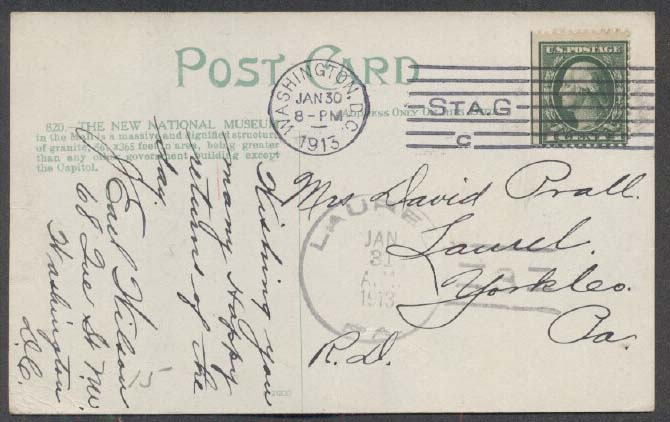 POST CARD
820.—THE NEW NATIONAL MUSEUM
in the Mall is a massive and dignified structure
of granite, 565x365 feet in area, being greater
than any other government building except
the Capitol.
ADDRESS ONLY
WASHINGTON, D.C.
JAN 30
8-PM
1913
STA.G
C
U.S. POSTAGE
Wishing you
many Happy
returns of the
day,
Earl Wilson
68 Que St. NW.
Washington
D.C.
15
Mrs David Prall.
Laurel.
York Co.
Pa.
R.D.
LAUREL
JAN
31
A.M.
1913
PA.